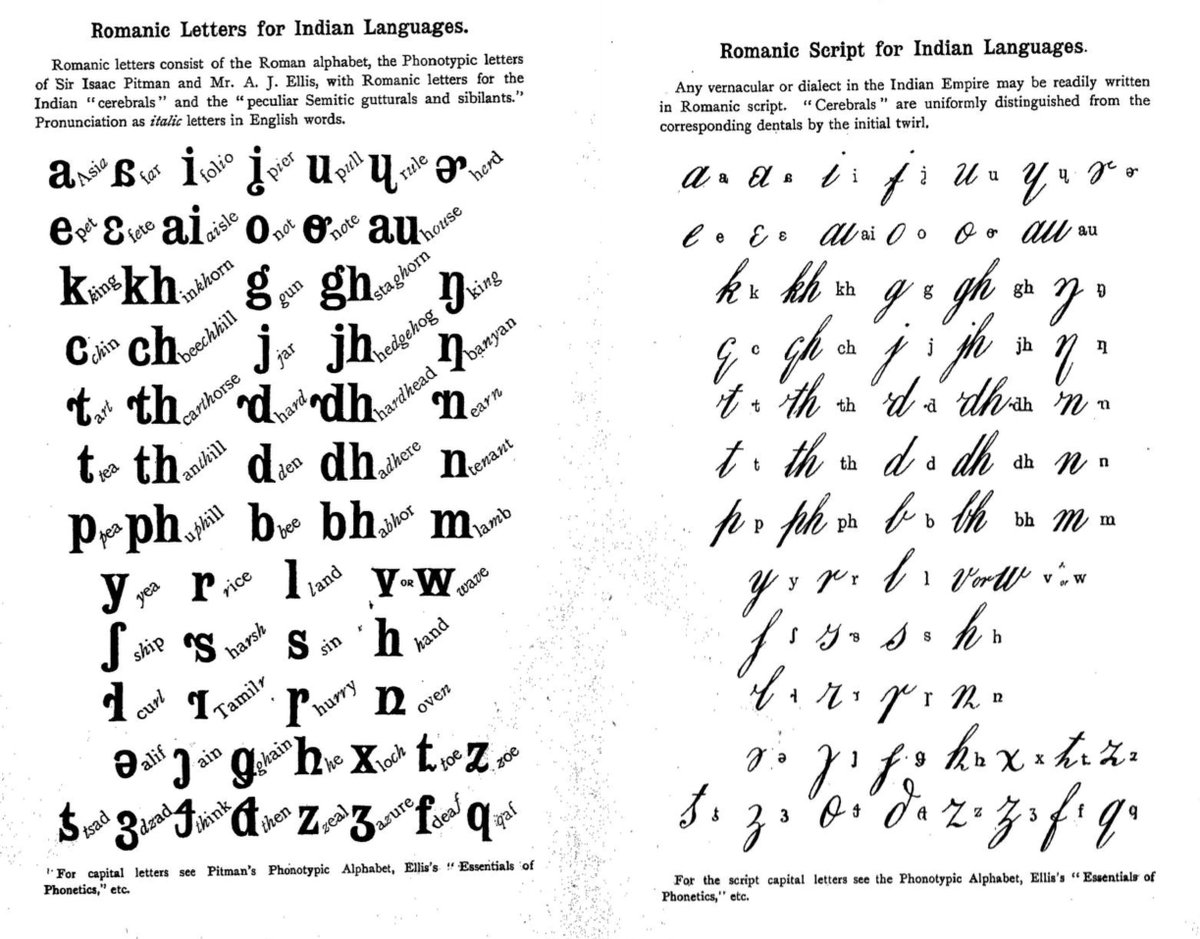 Romanic Letters for Indian Languages.
Romanic letters consist of the Roman alphabet, the Phonotypic letters
of Sir Isaac Pitman and Mr. A. J. Ellis, with Romanic letters for the
Indian "cerebrals" and the "peculiar Semitic gutturals and sibilants."
Pronunciation as italic letters in English words.
a Asia ɐ far i folio į pier u pull ɥ rule ə herd
e pet ɛ fete ai aisle o not ơ note au house
k king kh inkhorn g gun gh staghorn ŋ king
c chin ch beechhill j jar jh hedgehog ƞ banyan
t art th carthorse d hard dh hardhead n earn
t tea th anthill d den dh adhere n tenant
p pea ph uphill b bee bh abhor m lamb
y yea r rice l land v OR w wave
ʃ ship s harsh s sin h hand
curl Tamil hurry oven
ə alif ain ghain he x loch t toe z zoe
tsad ʒ dzad think then z zeal ʒ azure f deaf q qaf
For capital letters see Pitman's Phonotypic Alphabet, Ellis's "Essentials of
Phonetics," etc.
Romanic Script for Indian Languages.
Any vernacular or dialect in the Indian Empire may be readily written
in Romanic script. "Cerebrals" are uniformly distinguished from the
corresponding dentals by the initial twirl.
a a i i u u
e e ɛ ɛ ai ai o o au au
k k kh kh g g gh gh ŋ ŋ
c c ch ch j j jh jh
t t th th d d dh dh n n
t t th th d d dh dh n n
p p ph ph b b bh bh m m
y y r r l l v or w v or w
ʃ ʃ s s s s h h
ə ə x x t t z z
ʒ ʒ z z ʒ ʒ f f q q
For the script capital letters see the Phonotypic Alphabet, Ellis's "Essentials of
Phonetics," etc.